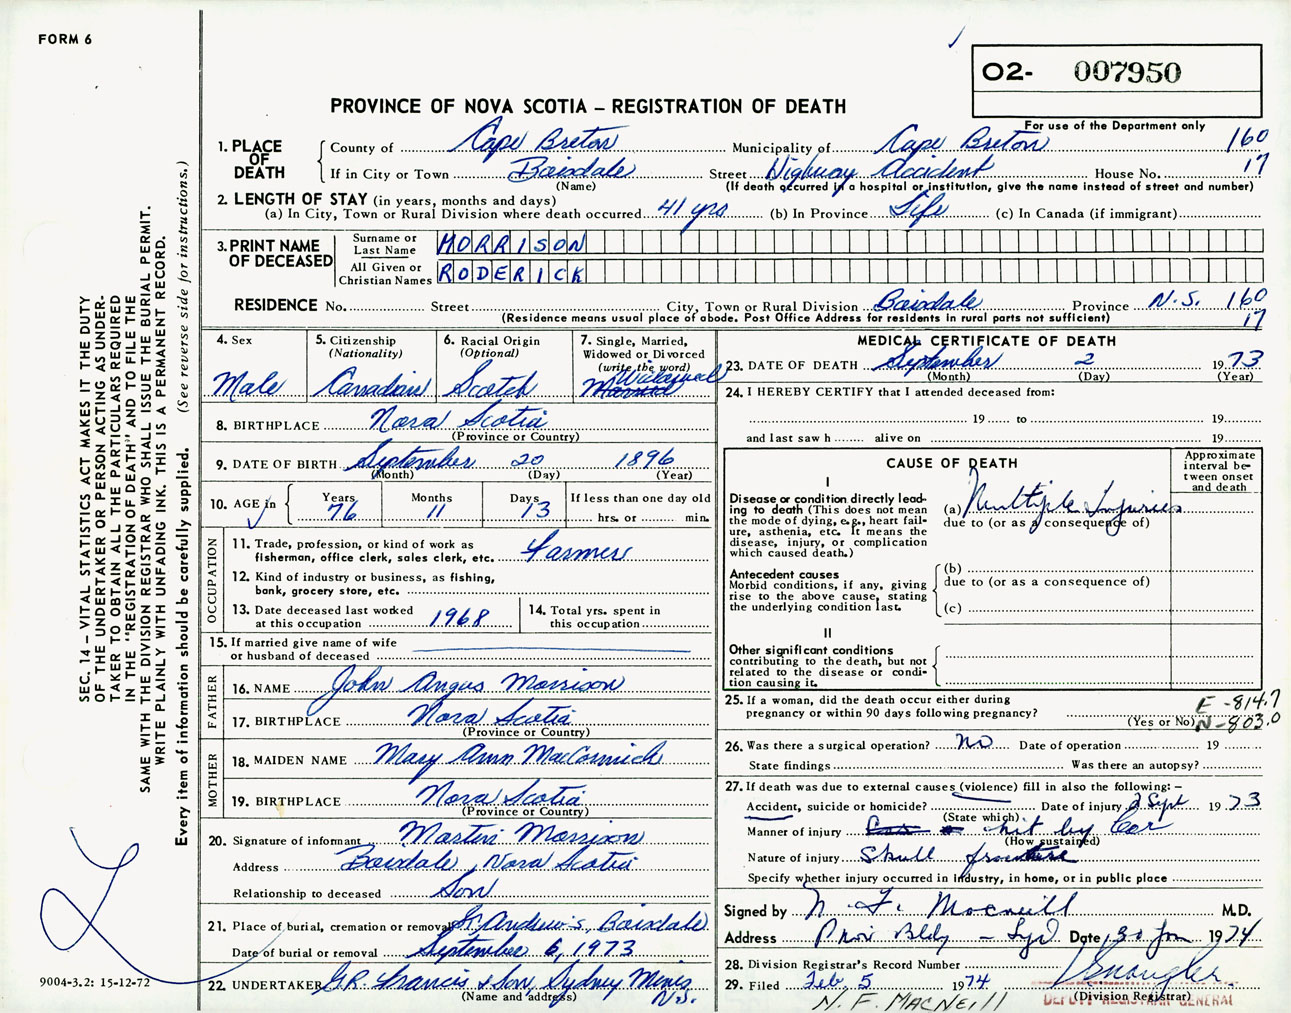 FORM 6
O2- 007950
PROVINCE OF NOVA SCOTIA – REGISTRATION OF DEATH
For use of the Department only
1. PLACE OF DEATH County of Cape Breton Municipality of Cape Breton 160
If in City or Town Boisdale Street Highway Accident House No. 17
(Name) (If death occurred in a hospital or institution, give the name instead of street and number)
2. LENGTH OF STAY (in years, months and days)
(a) In City, Town or Rural Division where death occurred 41 yrs (b) In Province Life (c) In Canada (if immigrant)
3. PRINT NAME OF DECEASED
Surname or Last Name MORRISON
All Given or Christian Names RODERICK
RESIDENCE No. Street City, Town or Rural Division Boisdale Province N.S. 160
(Residence means usual place of abode. Post Office Address for residents in rural parts not sufficient) 17
4. Sex Male
5. Citizenship (Nationality) Canadian
6. Racial Origin (Optional) Scotch
7. Single, Married, Widowed or Divorced (write the word) Widowed Married
8. BIRTHPLACE Nova Scotia
(Province or Country)
9. DATE OF BIRTH September 20 1896
(Month) (Day) (Year)
10. AGE in Years 76 Months 11 Days 13 If less than one day old
hrs. or min.
OCCUPATION
11. Trade, profession, or kind of work as fisherman, office clerk, sales clerk, etc. Farmer
12. Kind of industry or business, as fishing, bank, grocery store, etc.
13. Date deceased last worked at this occupation 1968
14. Total yrs. spent in this occupation
15. If married give name of wife or husband of deceased
FATHER
16. NAME John Angus Morrison
17. BIRTHPLACE Nova Scotia
(Province or Country)
MOTHER
18. MAIDEN NAME Mary Ann MacCormick
19. BIRTHPLACE Nova Scotia
(Province or Country)
20. Signature of informant Martin Morrison
Address Boisdale, Nova Scotia
Relationship to deceased Son
21. Place of burial, cremation or removal St. Andrew's, Boisdale
Date of burial or removal September 6, 1973
22. UNDERTAKER G.R. Francis & Son, Sydney Mines N.S.
(Name and address)
MEDICAL CERTIFICATE OF DEATH
23. DATE OF DEATH September 2 1973
(Month) (Day) (Year)
24. I HEREBY CERTIFY that I attended deceased from:
19 to 19
and last saw h alive on 19
CAUSE OF DEATH
Approximate interval between onset and death
I
Disease or condition directly leading to death (This does not mean the mode of dying, e.g., heart failure, asthenia, etc. It means the disease, injury, or complication which caused death.)
(a) Multiple Injuries
due to (or as a consequence of)
Antecedent causes
Morbid conditions, if any, giving rise to the above cause, stating the underlying condition last.
(b)
due to (or as a consequence of)
(c)
II
Other significant conditions contributing to the death, but not related to the disease or condition causing it.
25. If a woman, did the death occur either during pregnancy or within 90 days following pregnancy? (Yes or No)
E-814.7
N-803.0
26. Was there a surgical operation? No Date of operation 19
State findings Was there an autopsy?
27. If death was due to external causes (violence) fill in also the following: –
Accident, suicide or homicide? Date of injury 2 Sept 1973
(State which)
Manner of injury hit by Car
(How sustained)
Nature of injury Skull fracture
Specify whether injury occurred in industry, in home, or in public place
Signed by N. F. Macneill M.D.
Address Prov Bldg – Syd Date 30 Jan 1974
28. Division Registrar's Record Number
29. Filed Feb. 5 1974
(Division Registrar)
DEPUTY REGISTRAR GENERAL
N. F. MACNEILL
SEC. 14 – VITAL STATISTICS ACT MAKES IT THE DUTY
OF THE UNDERTAKER OR PERSON ACTING AS UNDERTAKER
TO OBTAIN ALL THE PARTICULARS REQUIRED
IN THE "REGISTRATION OF DEATH" AND TO FILE THE
SAME WITH THE DIVISION REGISTRAR WHO SHALL ISSUE THE BURIAL PERMIT.
WRITE PLAINLY WITH UNFADING INK. THIS IS A PERMANENT RECORD.
Every item of information should be carefully supplied. (See reverse side for instructions.)
9004-3.2: 15-12-72